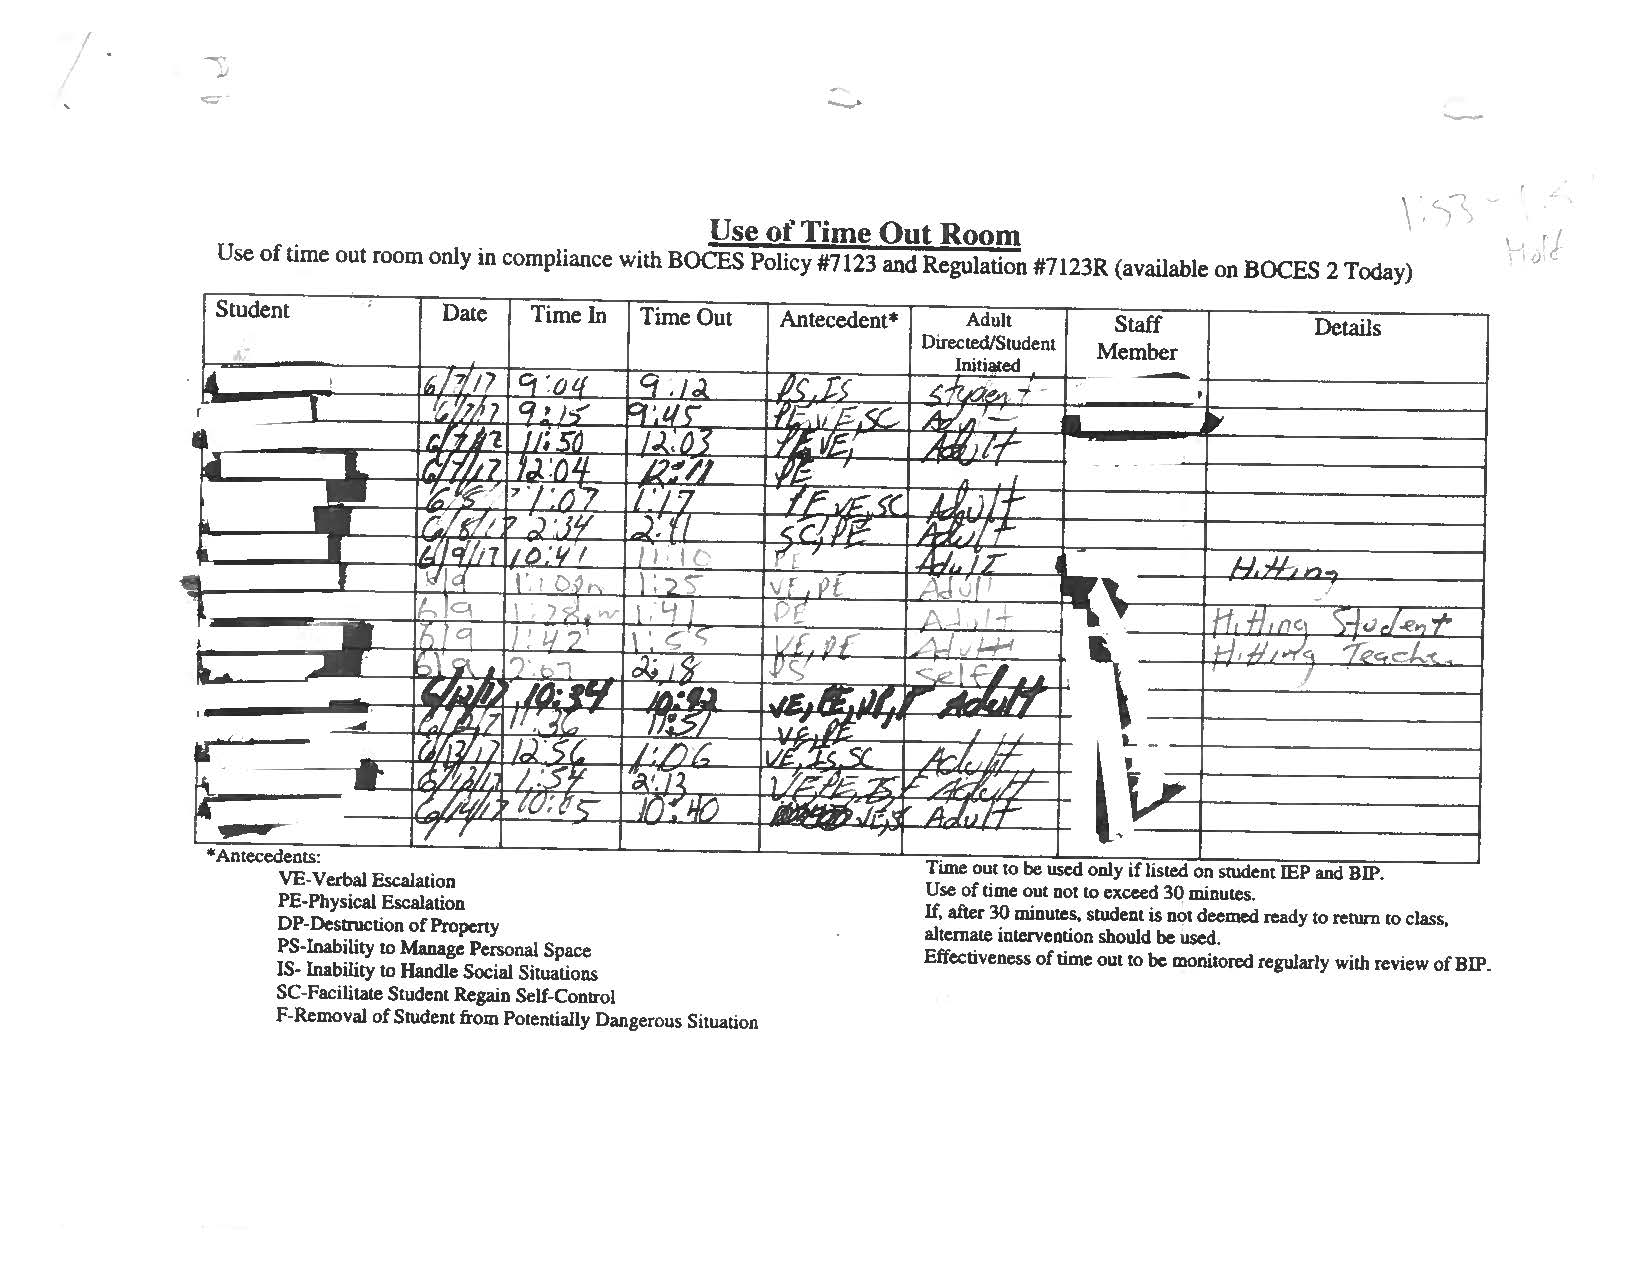 1:53 - 1:5
Hold
Use of Time Out Room
Use of time out room only in compliance with BOCES Policy #7123 and Regulation #7123R (available on BOCES 2 Today)
Student Date Time In Time Out Antecedent* Adult Directed/Student Initiated Staff Member Details
6/7/17 9:04 9:12 PS, IS student
6/7/17 9:15 9:45 PE, VE, SC
6/7/17 11:50 12:03 PE, VE, Adult
6/7/17 12:04 12:11 PE
6/8/ 1:07 1:17 PE, VE, SC Adult
6/8/17 2:34 2:41 SC, PE Adult
6/9/17 10:41 11:10 PE Adult Hitting
6/9 1:25 VE, PE Adult
6/9 1:28pm 1:41 PE Adult Hitting Student
6/9 1:42 1:55 VE, PE Adult Hitting Teacher
6/9 2:07 2:18 PS Self
6/12/17 10:34 VE, PE, Adult
11:36 11:51 VE, PE
6/13/17 12:56 1:06 VE, IS, SC Adult
1:54 2:13 VE, PE, IS, F Adult
6/14/17 10:05 10:40 Adult
*Antecedents:
VE-Verbal Escalation
PE-Physical Escalation
DP-Destruction of Property
PS-Inability to Manage Personal Space
IS- Inability to Handle Social Situations
SC-Facilitate Student Regain Self-Control
F-Removal of Student from Potentially Dangerous Situation
Time out to be used only if listed on student IEP and BIP.
Use of time out not to exceed 30 minutes.
If, after 30 minutes, student is not deemed ready to return to class,
alternate intervention should be used.
Effectiveness of time out to be monitored regularly with review of BIP.